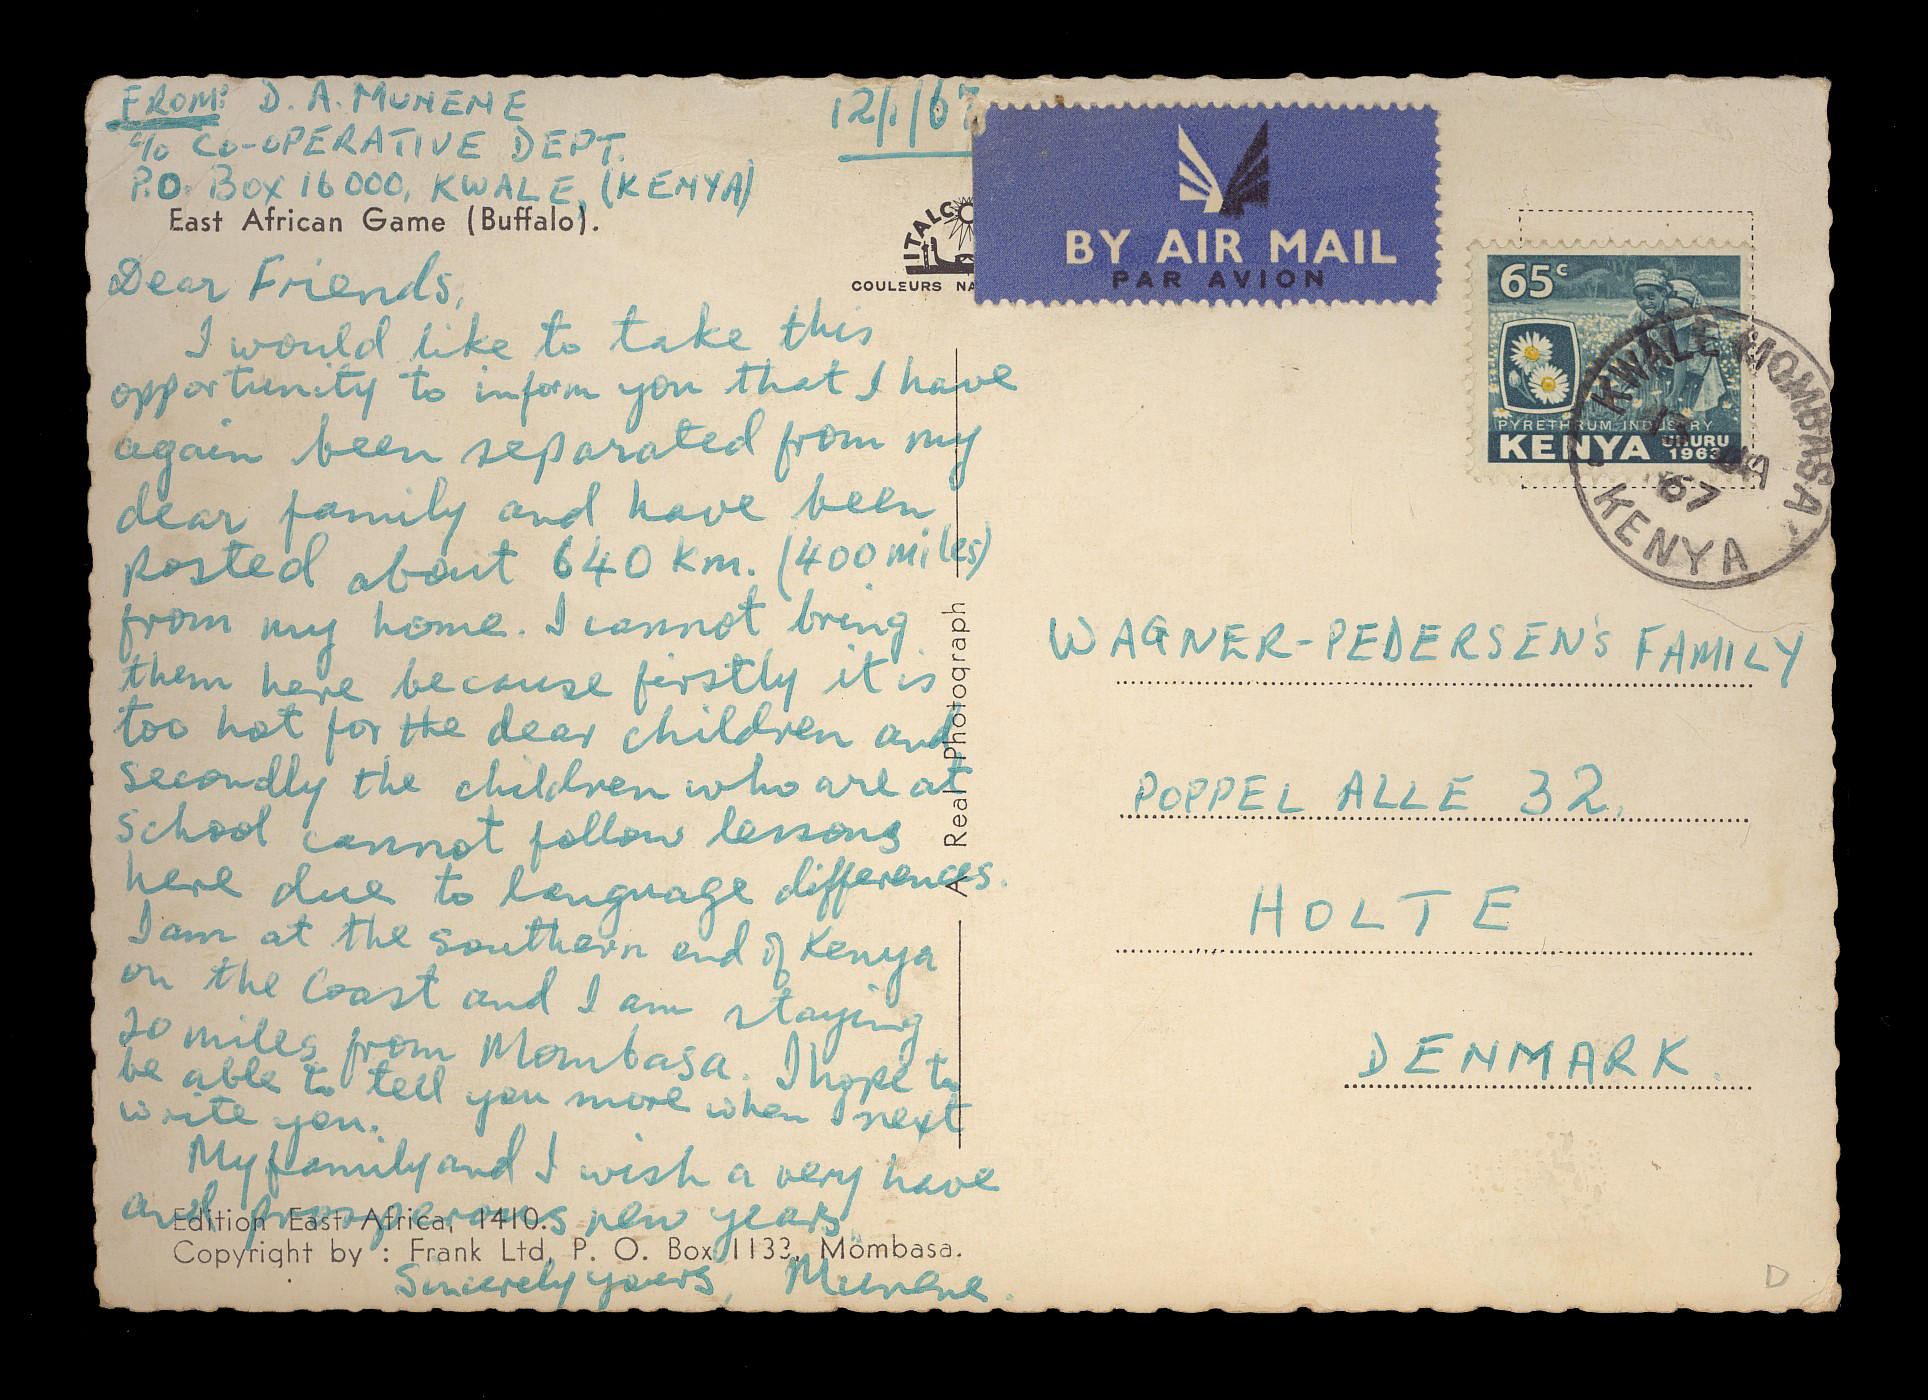 FROM: D. A. MUNENE
c/o CO-OPERATIVE DEPT.
P.O. BOX 16000, KWALE, (KENYA)
12/1/67
East African Game (Buffalo).
ITALCO
COULEURS NA
Dear Friends,
I would like to take this
opportunity to inform you that I have
again been separated from my
dear family and have been
posted about 640 km. (400 miles)
from my home. I cannot bring
them here because firstly it is
too hot for the dear children and
secondly the children who are at
school cannot follow lessons
here due to language differences.
I am at the southern end of Kenya
on the Coast and I am staying
20 miles from Mombasa. I hope to
be able to tell you more when I next
write you.
My family and I wish a very have
and prosperous new years.
Sincerely yours, Munene.
Edition East Africa, 1410.
Copyright by : Frank Ltd. P. O. Box 1133, Mombasa.
A Real Photograph
BY AIR MAIL
PAR AVION
65c
PYRETHRUM INDUSTRY
KENYA UHURU
1963
KWALE MOMBASA
67
KENYA
WAGNER-PEDERSEN'S FAMILY
POPPEL ALLE 32,
HOLTE
DENMARK.
D